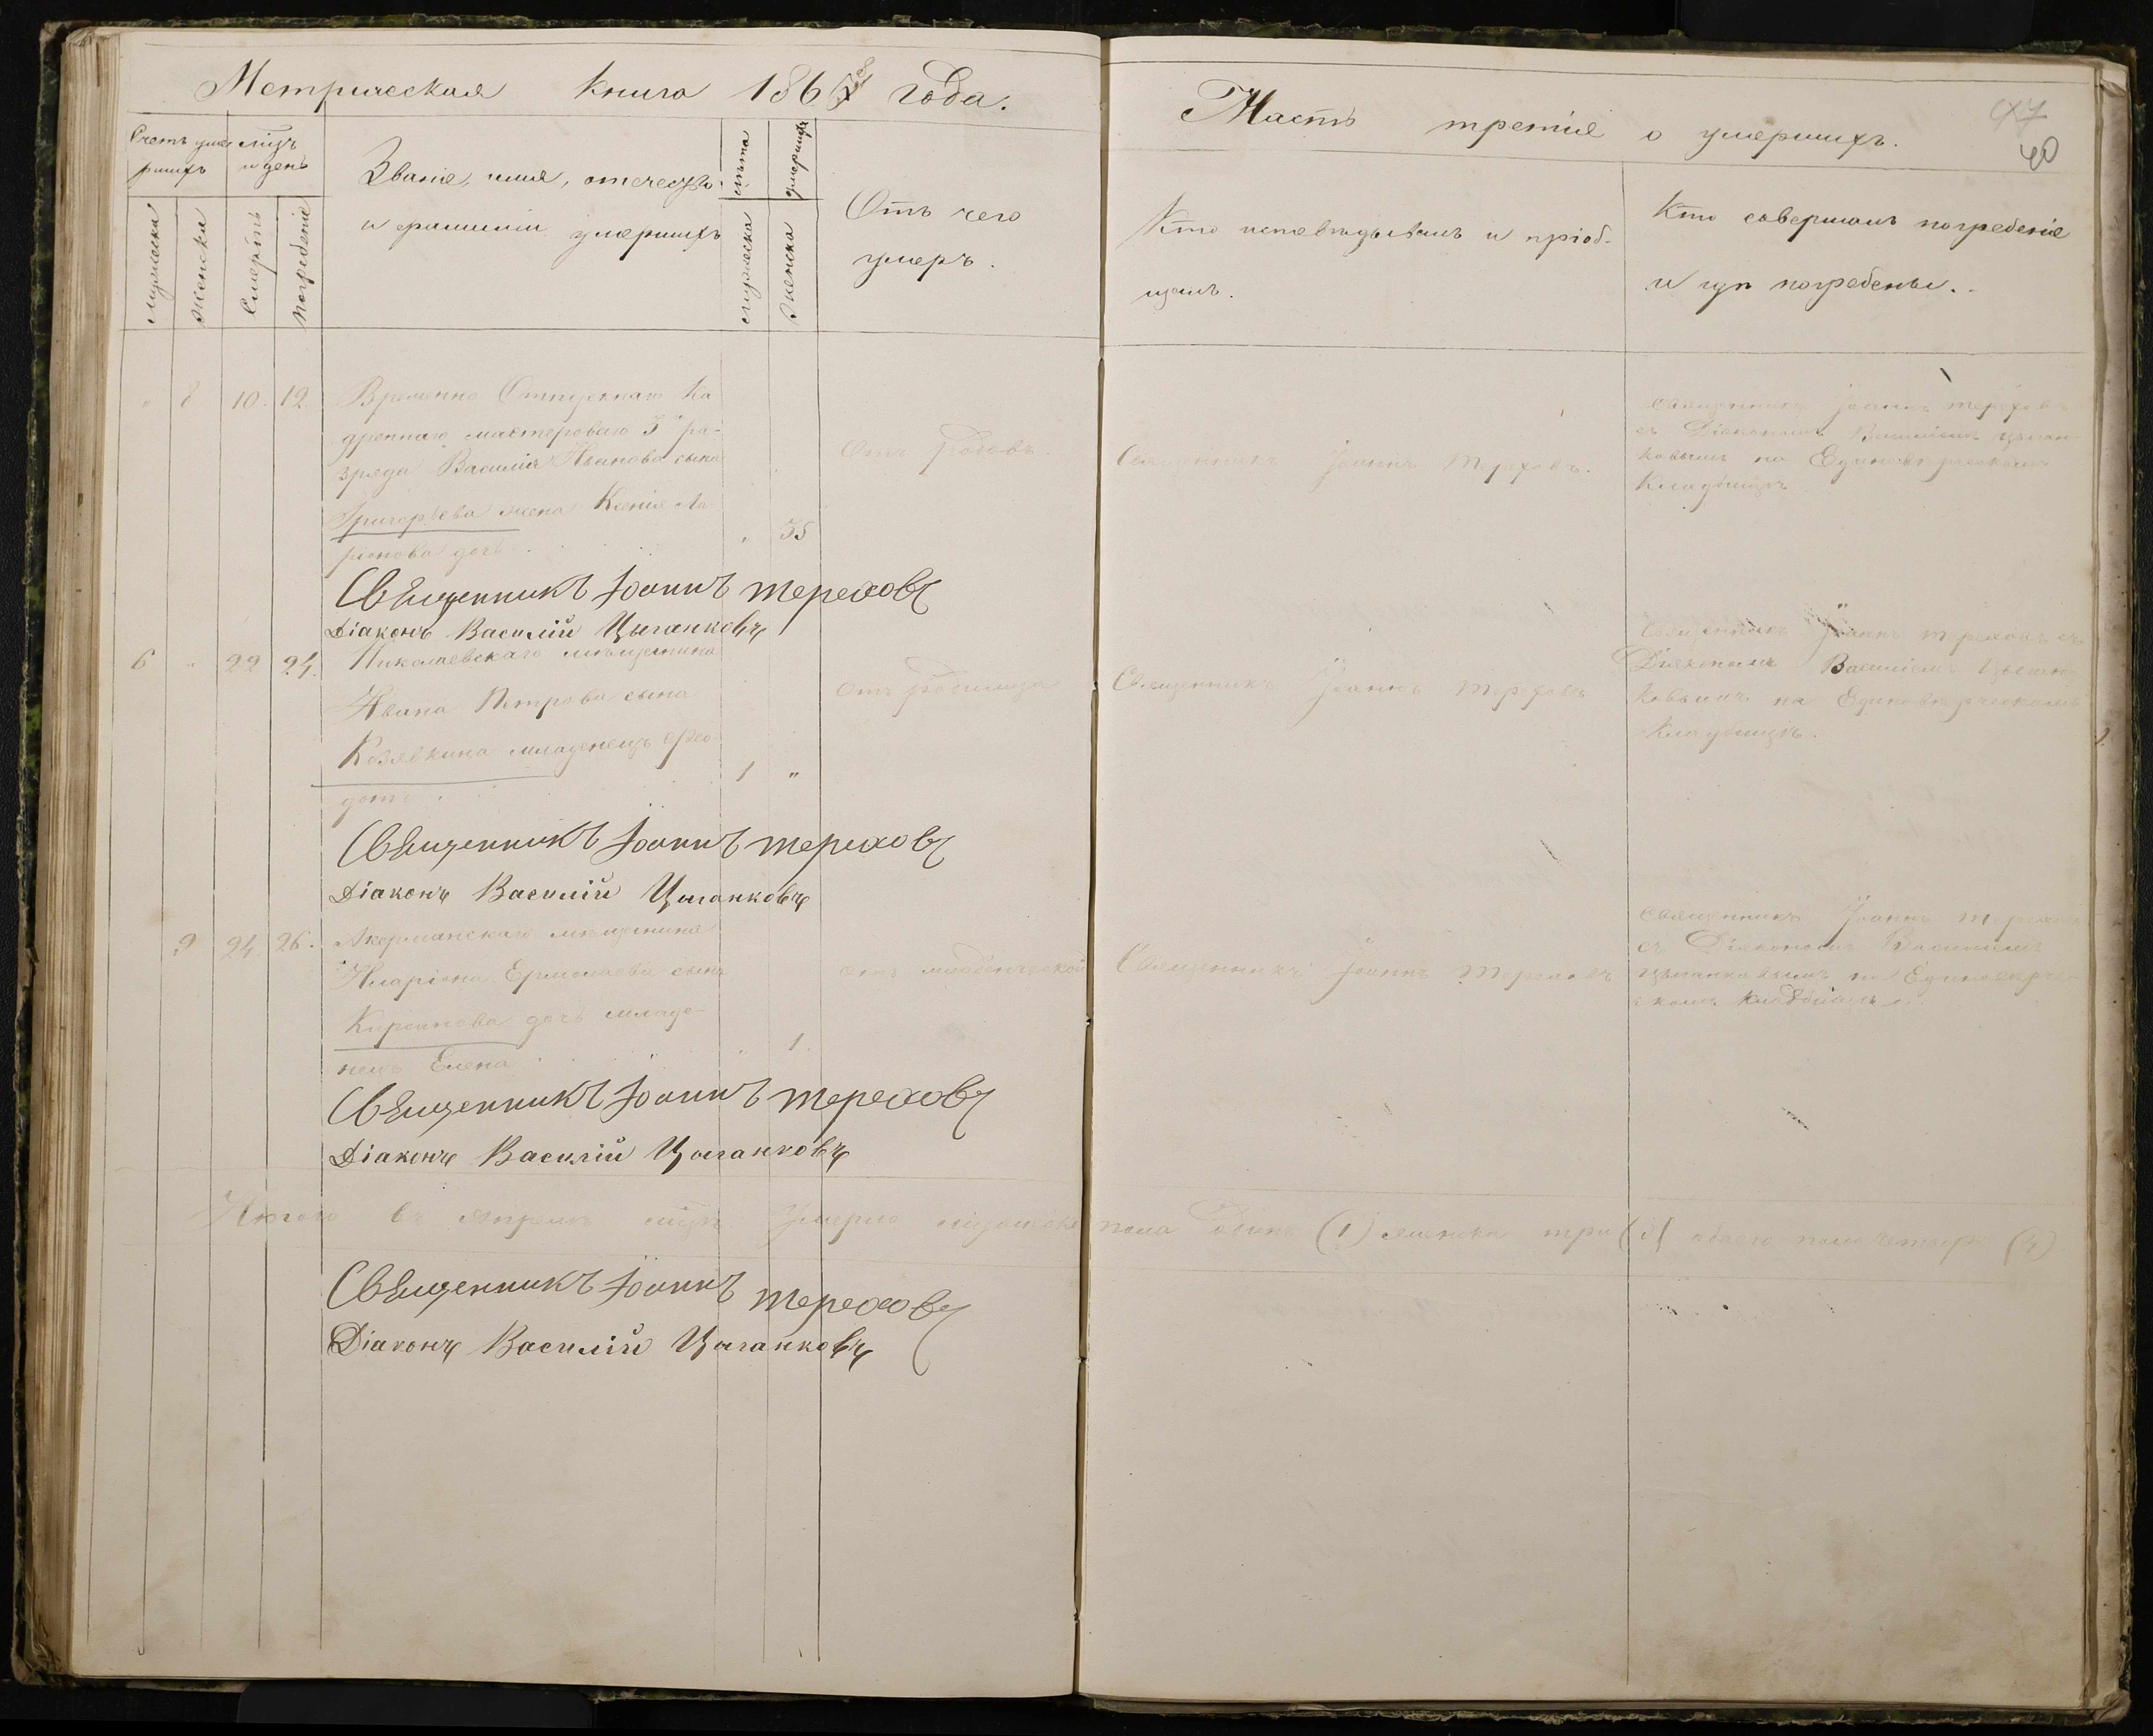 Метрическая книга 1868 года.
Часть третія о умершихъ.
97
40
Счетъ умершихъ
мѣсяцъ и день
Званіе, имя, отечество
и фамиліи умершихъ
лѣта умершихъ
Отъ чего
умеръ.
Кто исповѣдывалъ и пріоб-
щалъ.
Кто совершалъ погребеніе
и гдѣ погребены.
мужеска
женска
Смерть
погребеніе
мужеска
женска
" 8 10. 12.
Временно Отпускнаго Ка
дреннаго мастероваго 3го ра-
зряда Василія Иванова сына
Григорьева жена Ксенія Ла
ріонова дочь
" 35
Отъ родовъ.
Священникъ Іоаннъ Тереховъ.
Священникъ Іоаннъ Тереховъ
съ Діакономъ Василіемъ Цыган-
ковымъ на Единовѣрческомъ
Кладбищѣ
Священникъ Іоаннъ Тереховъ
Діаконъ Василій Цыганковъ
6 " 22 24.
Николаевскаго мѣщанина
Ивана Петрова сына
Козявкина младенецъ Фео
дотъ
1 "
Отъ родимца
Священникъ Іоаннъ Тереховъ
Священникъ Іоаннъ Тереховъ съ
Діакономъ Василіемъ Цыган
ковымъ на Единовѣрческомъ
Кладбищѣ.
Священникъ Іоаннъ Тереховъ
Діаконъ Василій Цыганковъ
9 24. 26.
Акерманскаго мѣщанина
Иларіона Ермолаева сына
Кирсанова дочь младе-
нецъ Елена
" 1.
отъ младенческой
Священникъ Іоаннъ Тереховъ
Священникъ Іоаннъ Тереховъ
съ Діакономъ Василіемъ
Цыганковымъ на Единовѣрче-
скомъ Кладбищѣ.
Священникъ Іоаннъ Тереховъ
Діаконъ Василій Цыганковъ
Итого въ Апрелѣ мцѣ Умерло мужеска пола Одинъ (1) женска три (3) обоего пола четыре (4)
Священникъ Іоаннъ Тереховъ
Діаконъ Василій Цыганковъ